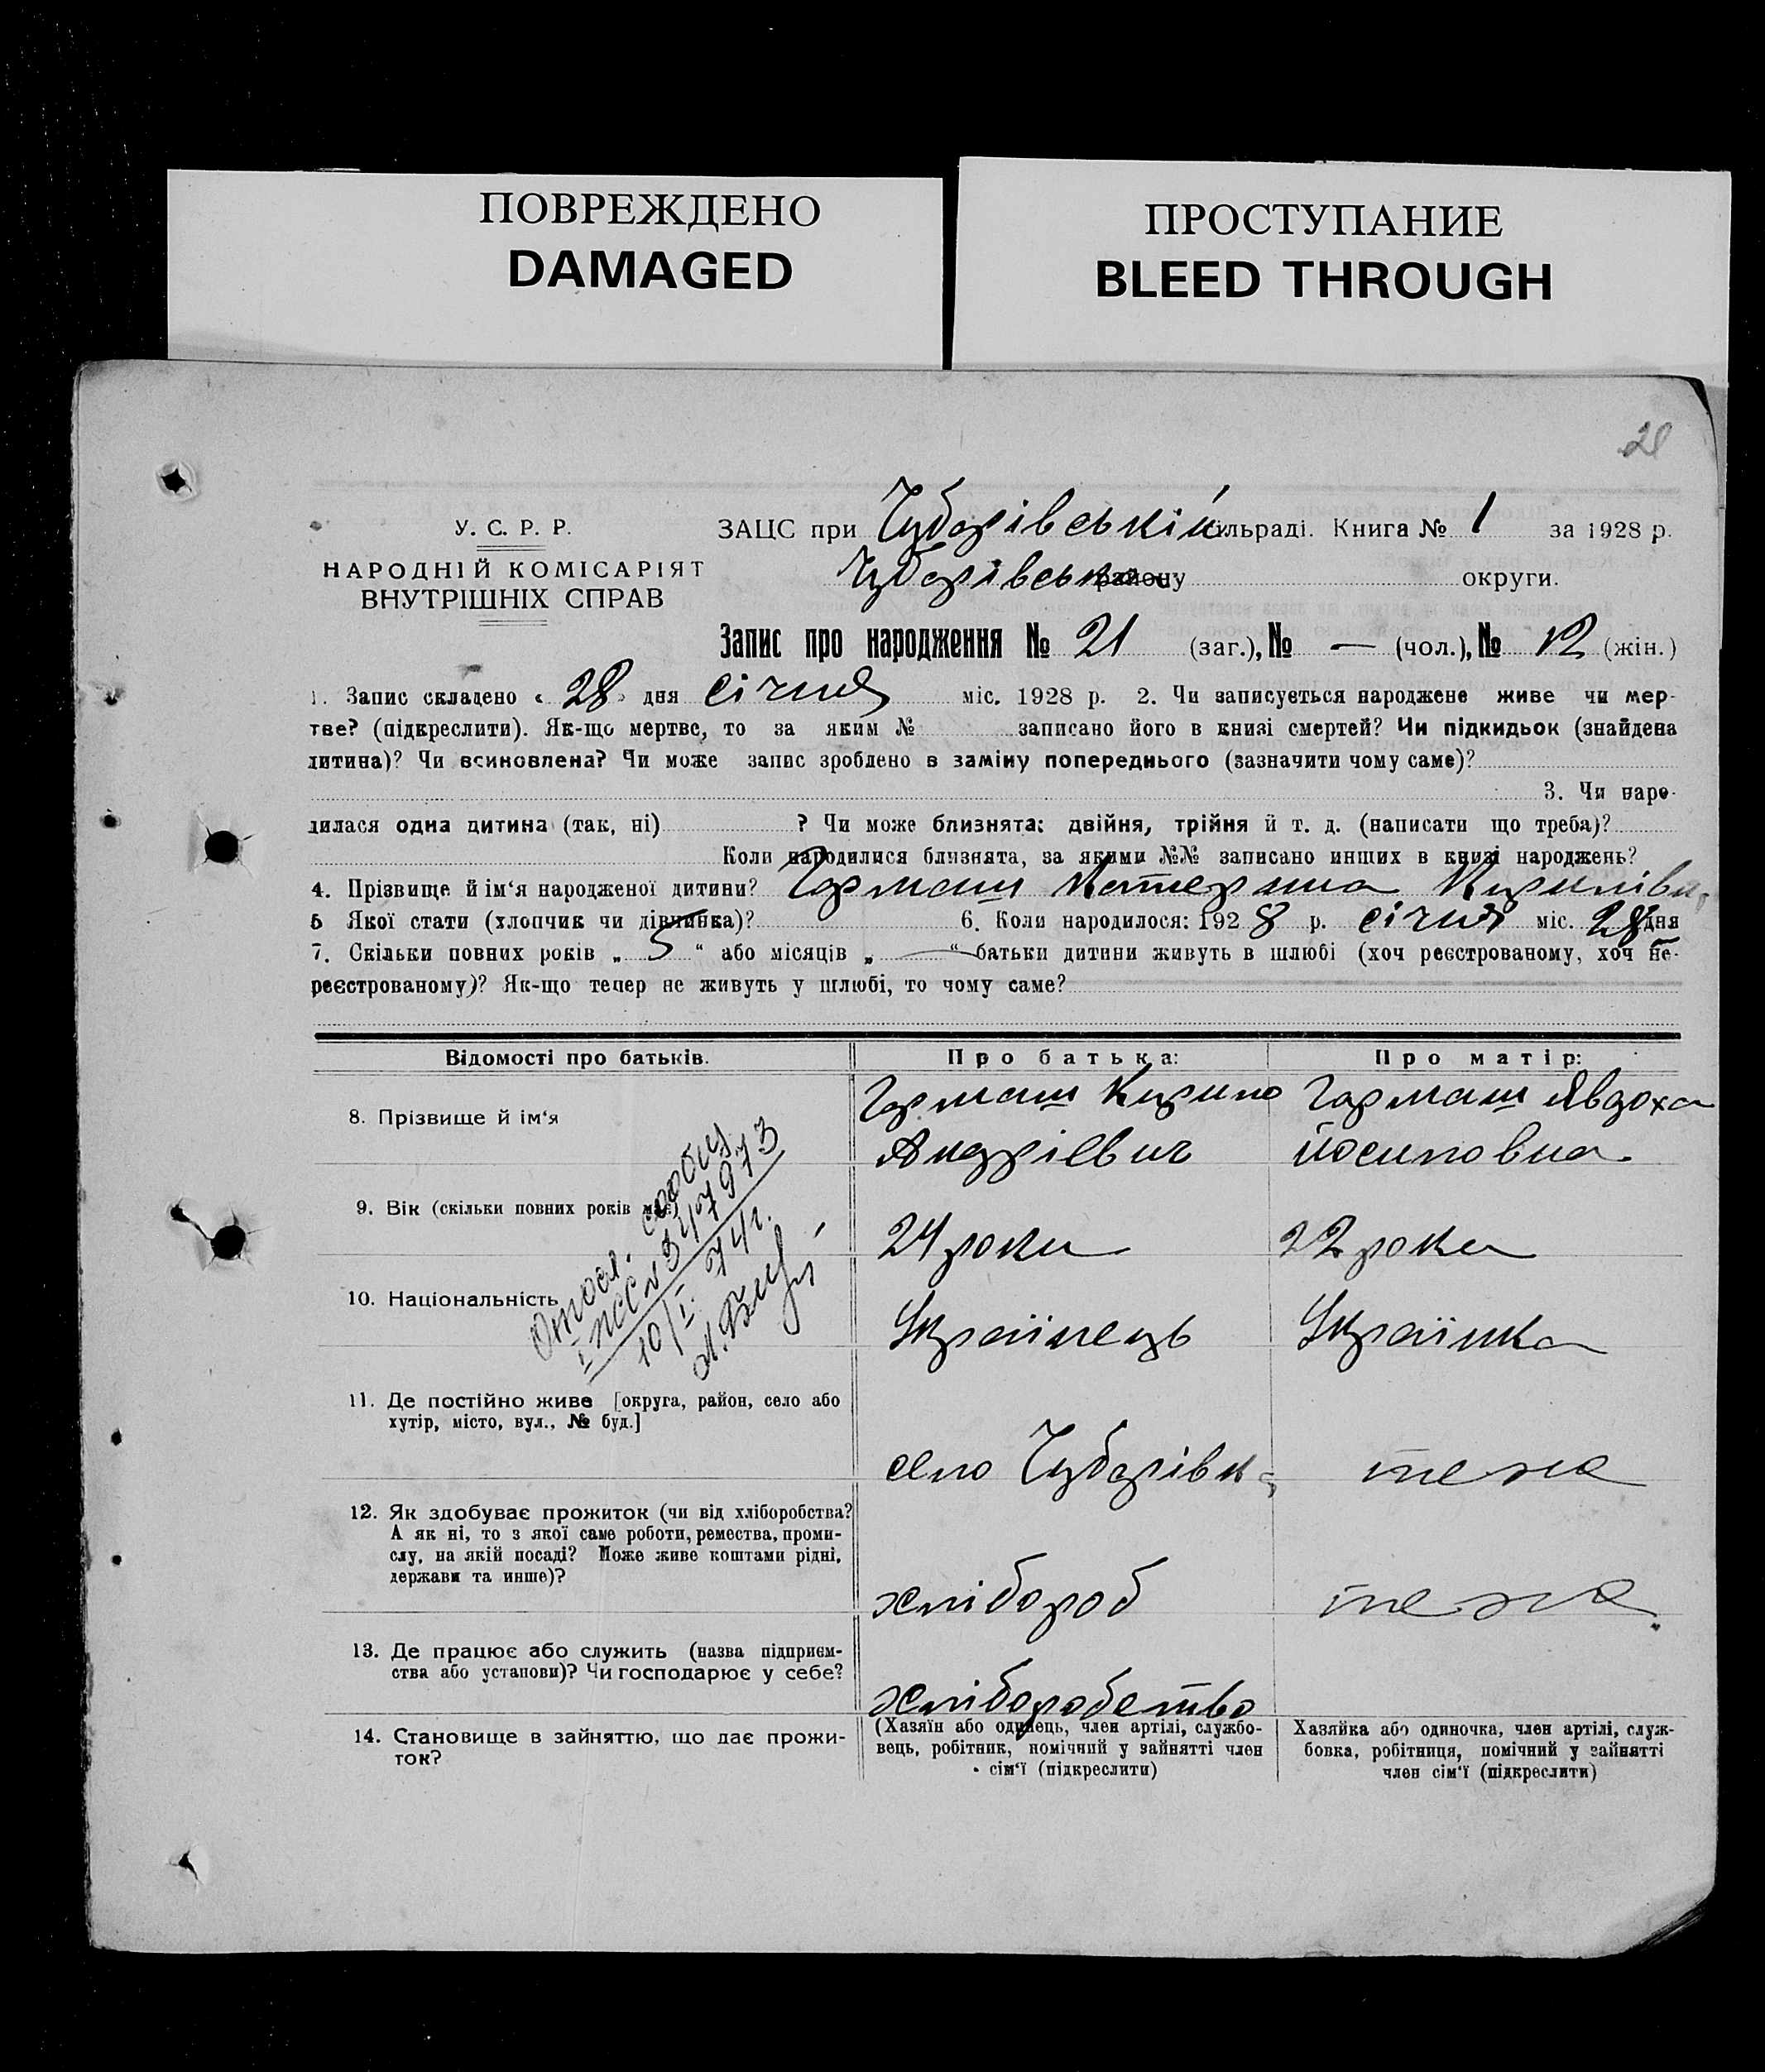 ПОВРЕЖДЕНО
DAMAGED
ПРОСТУПАНИЕ
BLEED THROUGH
У. С. Р. Р.
НАРОДНІЙ КОМІСАРІЯТ
ВНУТРІШНІХ СПРАВ
ЗАЦС при Чубарівській сільраді. Книга № 1 за 1928 р.
Чубарівськ району округи.
Запис про народження № 21 (заг.), № — (чол.), № 12 (жін.)
1. Запис складено « 28 » дня січня міс. 1928 р. 2. Чи записується народжене живе чи мер-
тве? (підкреслити). Як-що мертве, то за яким № записано його в книзі смертей? Чи підкидьок (знайдена
дитина)? Чи всиновлена? Чи може запис зроблено в заміну попереднього (зазначити чому саме)?
3. Чи наро-
дилася одна дитина (так, ні) ? Чи може близнята: двійня, трійня й т. д. (написати що треба)?
Коли народилися близнята, за якими №№ записано инших в книзі народжень?
4. Прізвище й ім‘я народженої дитини? Гармаш Катерина Кирилівна
5 Якої стати (хлопчик чи дівчинка)? 6. Коли народилося: 1928 р. січня міс. 28 дня
7. Скільки повних років „ 5 “ або місяців „ — “ батьки дитини живуть в шлюбі (хоч реєстрованому, хоч не-
реєстрованому)? Як-що тепер не живуть у шлюбі, то чому саме?
Відомості про батьків. Про батька: Про матір:
8. Прізвище й ім‘я Гармаш Кирило Гармаш Явдоха
Андріевич Йосиповна
9. Вік (скільки повних років має) 24 роки 22 роки
10. Національність Українець Українка
I ПСС № 347973
10/I. 74 г.
11. Де постійно живе [округа, район, село або
хутір, місто, вул., № буд.]
село Чубарівка теж
12. Як здобуває прожиток (чи від хліборобства?
А як ні, то з якої саме роботи, ремества, проми-
слу, на якій посаді? Може живе коштами рідні,
держави та инше)?
хлібороб теж
13. Де працює або служить (назва підприєм-
ства або установи)? Чи господарює у себе?
хліборобство
14. Становище в зайняттю, що дає прожи-
ток?
(Хазяїн або одинець, член артілі, службо-
вець, робітник, помічний у зайнятті член
сім‘ї (підкреслити)
Хазяйка або одиночка, член артілі, служ-
бовка, робітниця, помічний у зайнятті
член сім‘ї (підкреслити)